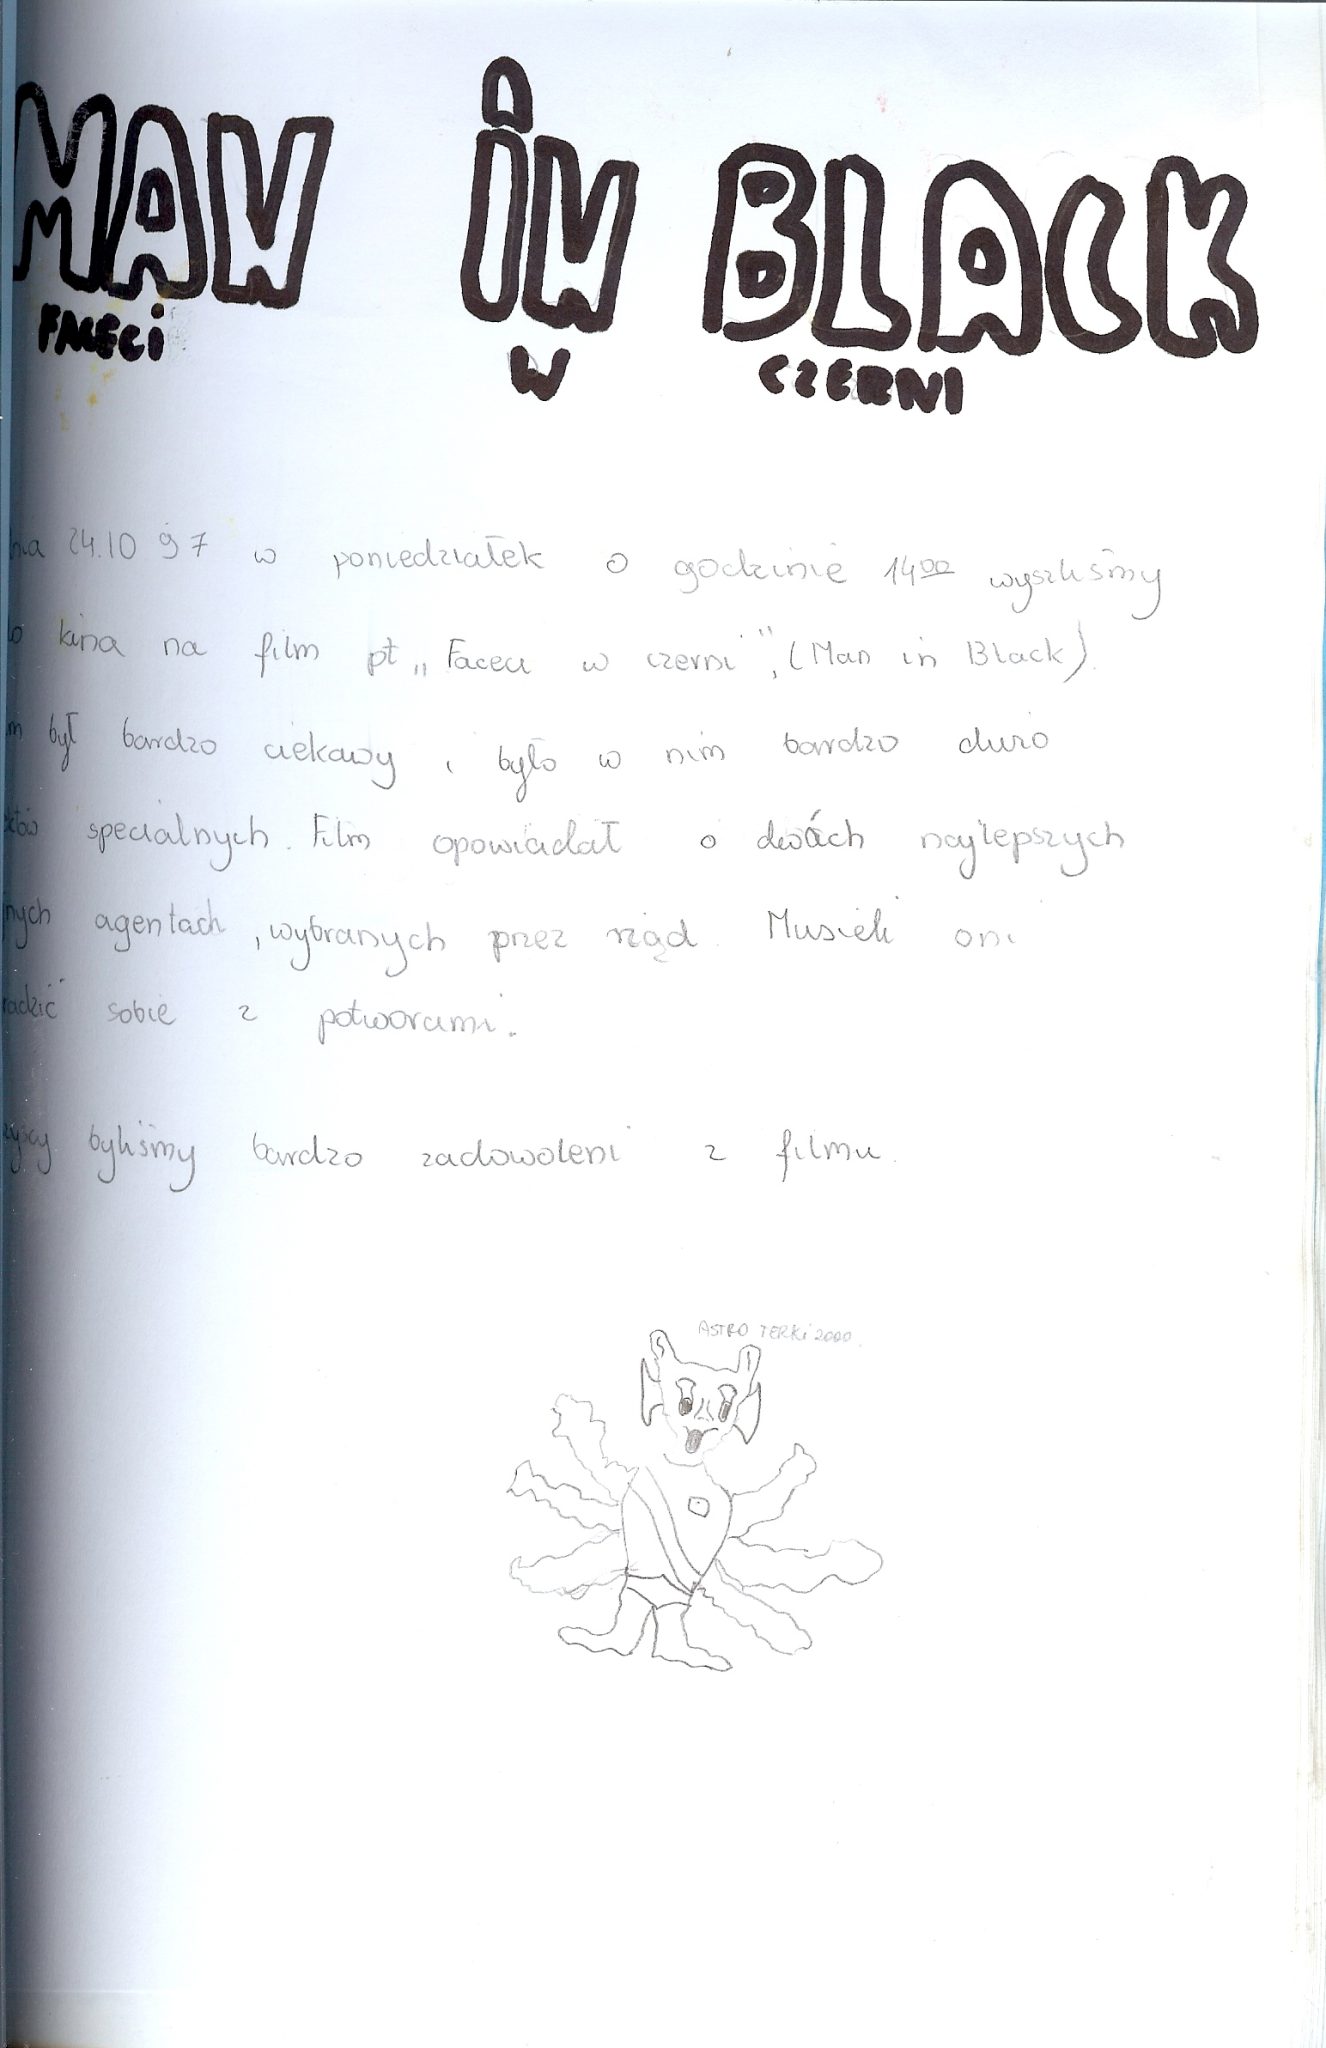 MAN IN BLACK
FACECI W CZERNI
nia 24.10 97 w poniedziałek o godzinie 14⁰⁰ wyszliśmy
o kina na film pt „Faceci w czerni”, (Man in Black).
m był bardzo ciekawy i było w nim bardzo dużo
któw specialnych. Film opowiadał o dwóch najlepszych
nych agentach, wybranych przez rząd. Musieli oni
radzić sobie z potworami.
zyscy byliśmy bardzo zadowoleni z filmu.
ASTRO TERKI 2000